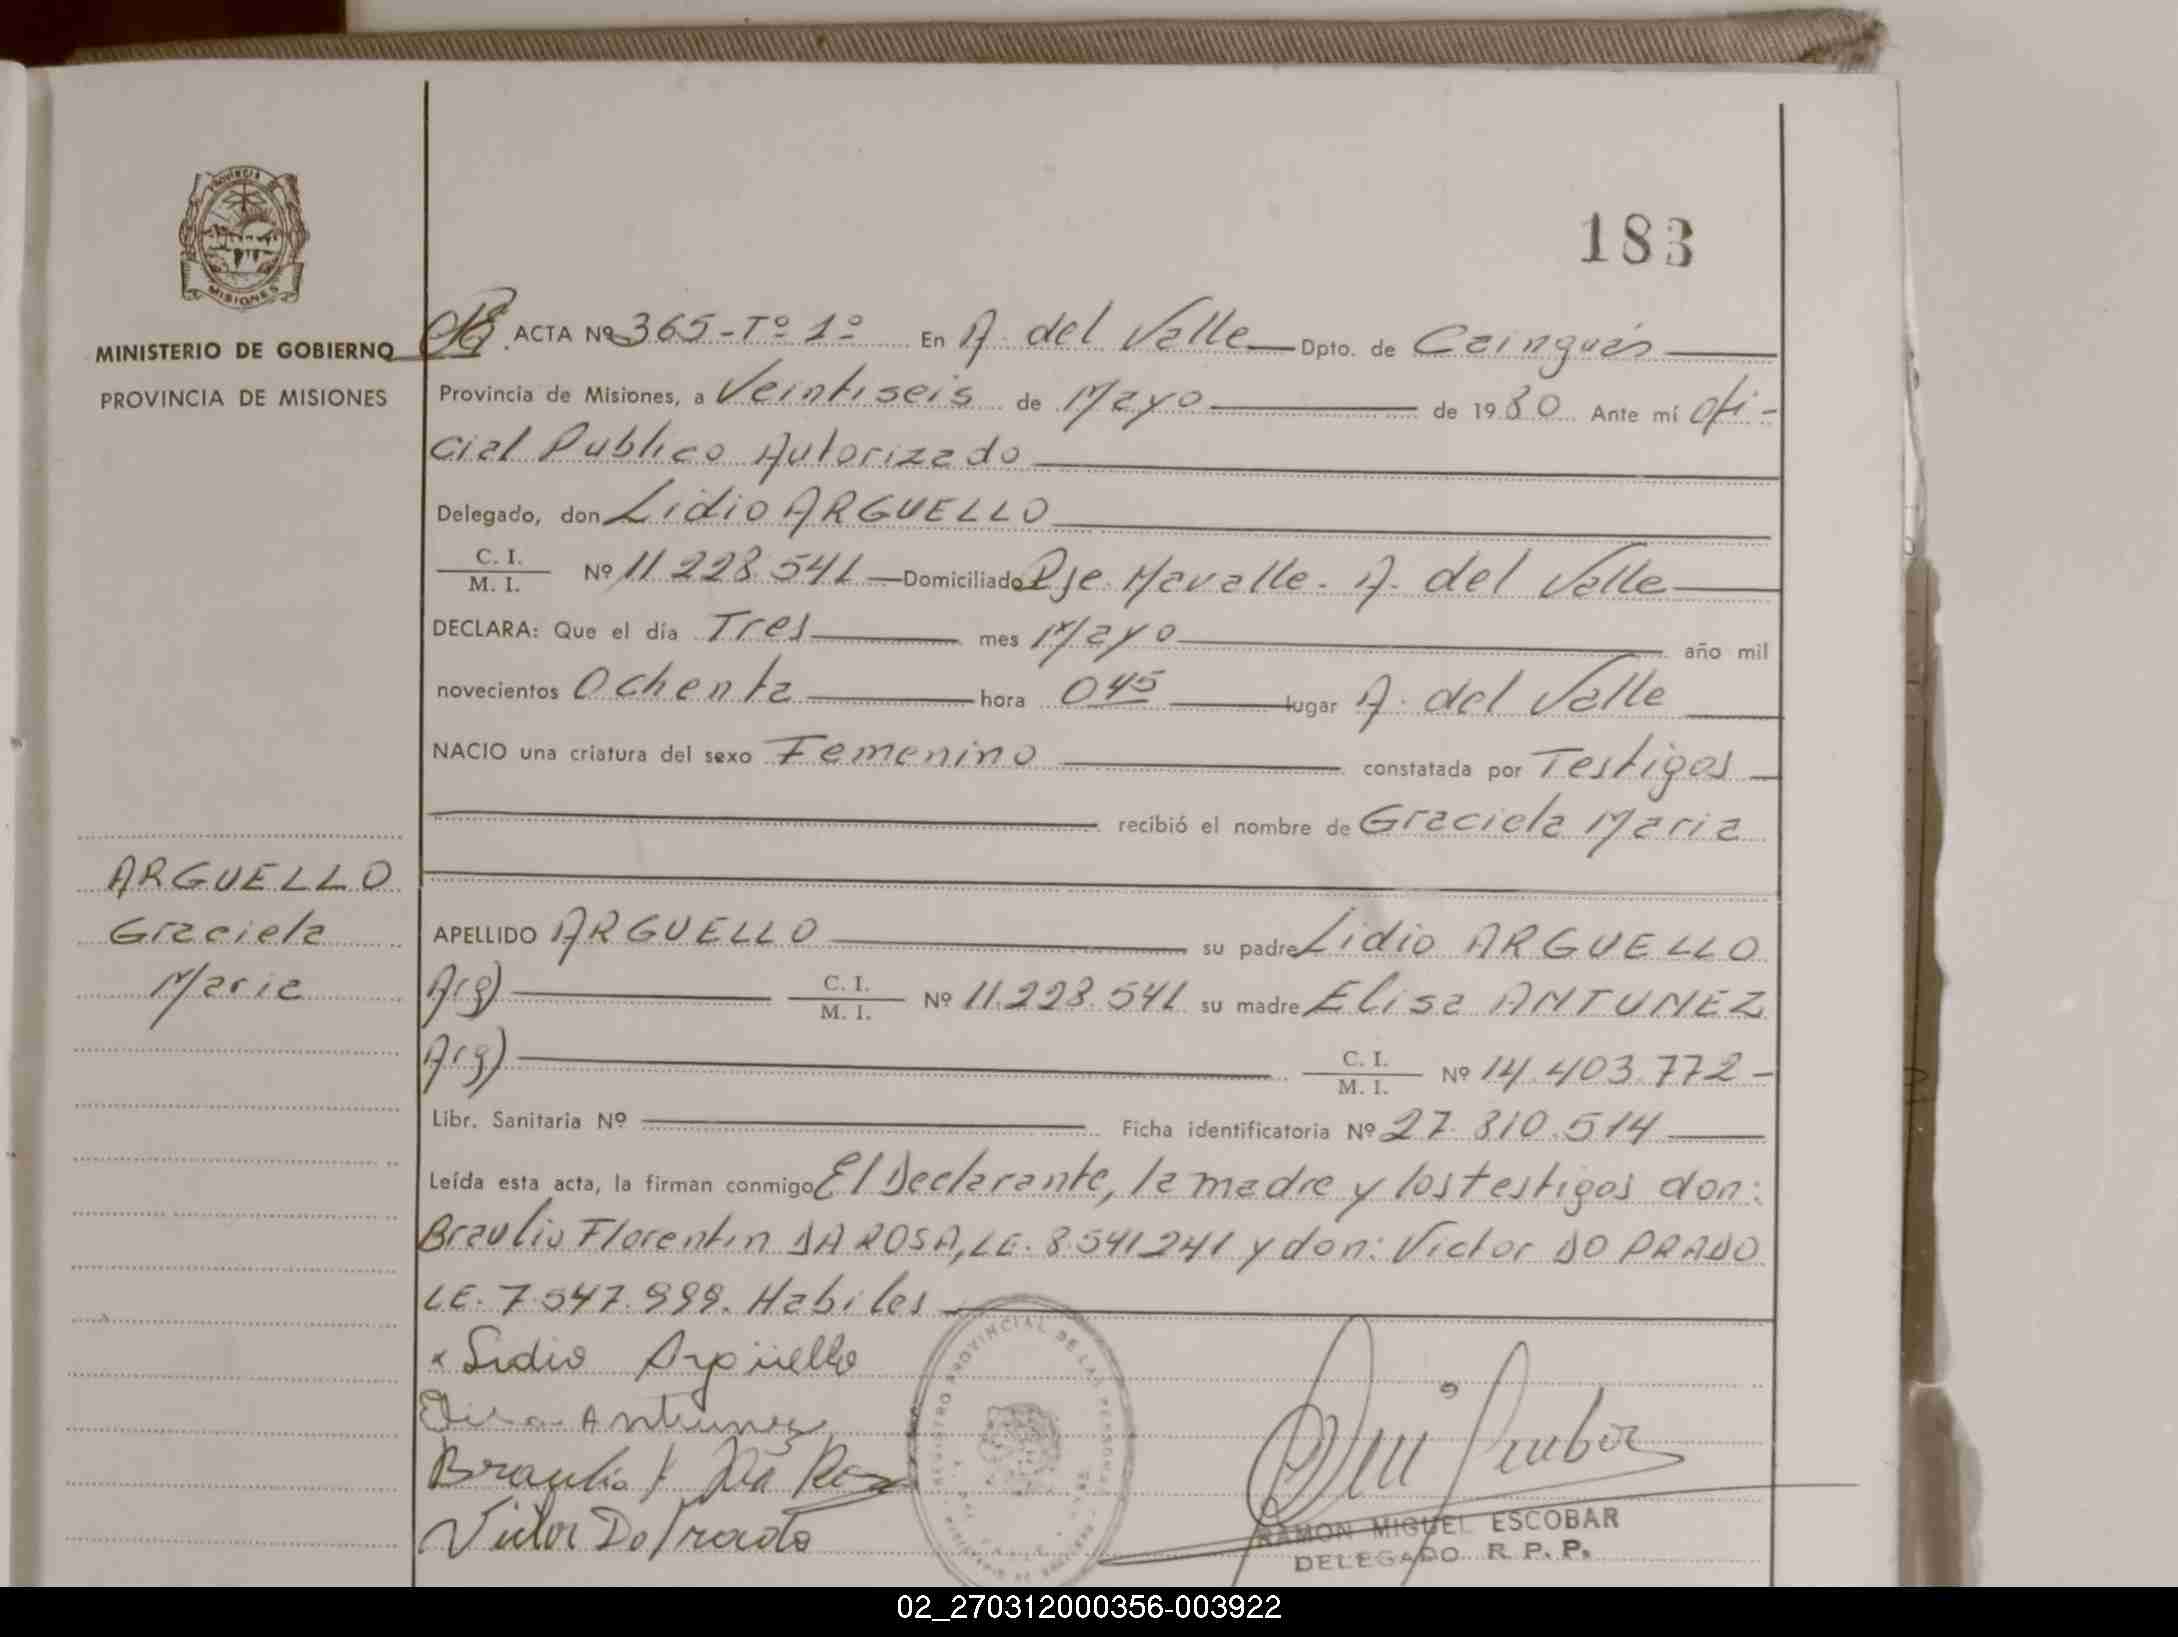 183
PROVINCIA DE
MISIONES
MINISTERIO DE GOBIERNO
PROVINCIA DE MISIONES
ACTA Nº 365-Tº 1º En A. del Valle Dpto. de Cainguás
Provincia de Misiones, a Veintiseis de Mayo de 1980 Ante mí Ofi-
cial Publico Autorizado
Delegado, don Lidio ARGUELLO
C. I.
M. I. Nº 11.228.541 Domiciliado Pje. Mavalle. A. del Valle
DECLARA: Que el día Tres mes Mayo año mil
novecientos Ochenta hora 045 lugar A. del Valle
NACIO una criatura del sexo Femenino constatada por Testigos
recibió el nombre de Graciela Maria
ARGUELLO
Graciela
Maria
APELLIDO ARGUELLO su padre Lidio ARGUELLO
Arg) C. I.
M. I. Nº 11.228.541 su madre Elisa ANTUNEZ
Arg) C. I.
M. I. Nº 14.403.772-
Libr. Sanitaria Nº Ficha identificatoria Nº 27.810.514
Leída esta acta, la firman conmigo El Declarante, la madre y los testigos don:
Braulio Florentin DA ROSA, LE. 8541241 y don: Victor DO PRADO
LE. 7.547.999. Habiles
x Lidio Argüello
Antunez
Braulio F. Da Rosa
Victor Do Prado
REGISTRO PROVINCIAL DE LAS PERSONAS
RAMON MIGUEL ESCOBAR
DELEGADO R. P. P.
02_270312000356-003922